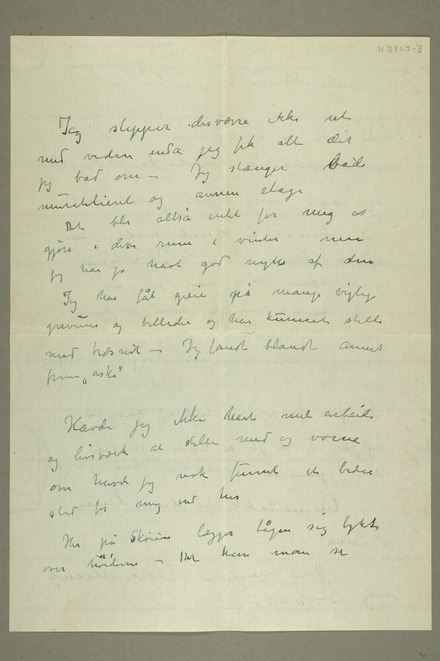 N 3307-3
Jeg slipper desværre ikke ut
med veden enda jeg fik alt det
jeg bad om — Jeg stænger både
og annen etage
Det blir altså intet for meg at
gjøre i disse rum i vinter men
jeg har jo havt god nytte af dem
Jeg har fåt greie på mange vigtige
gravure og billeder og har kunnet stelle
med træsnit — Jeg fandt blandt annet
„aske"
Havde jeg ikke havt mit arbeide
og livsværk at stelle med og værne
om havde jeg nok funnet et bedre
sted for mig end her
Her på Skøien lægger tågen sig tykt
over — Det kan man se